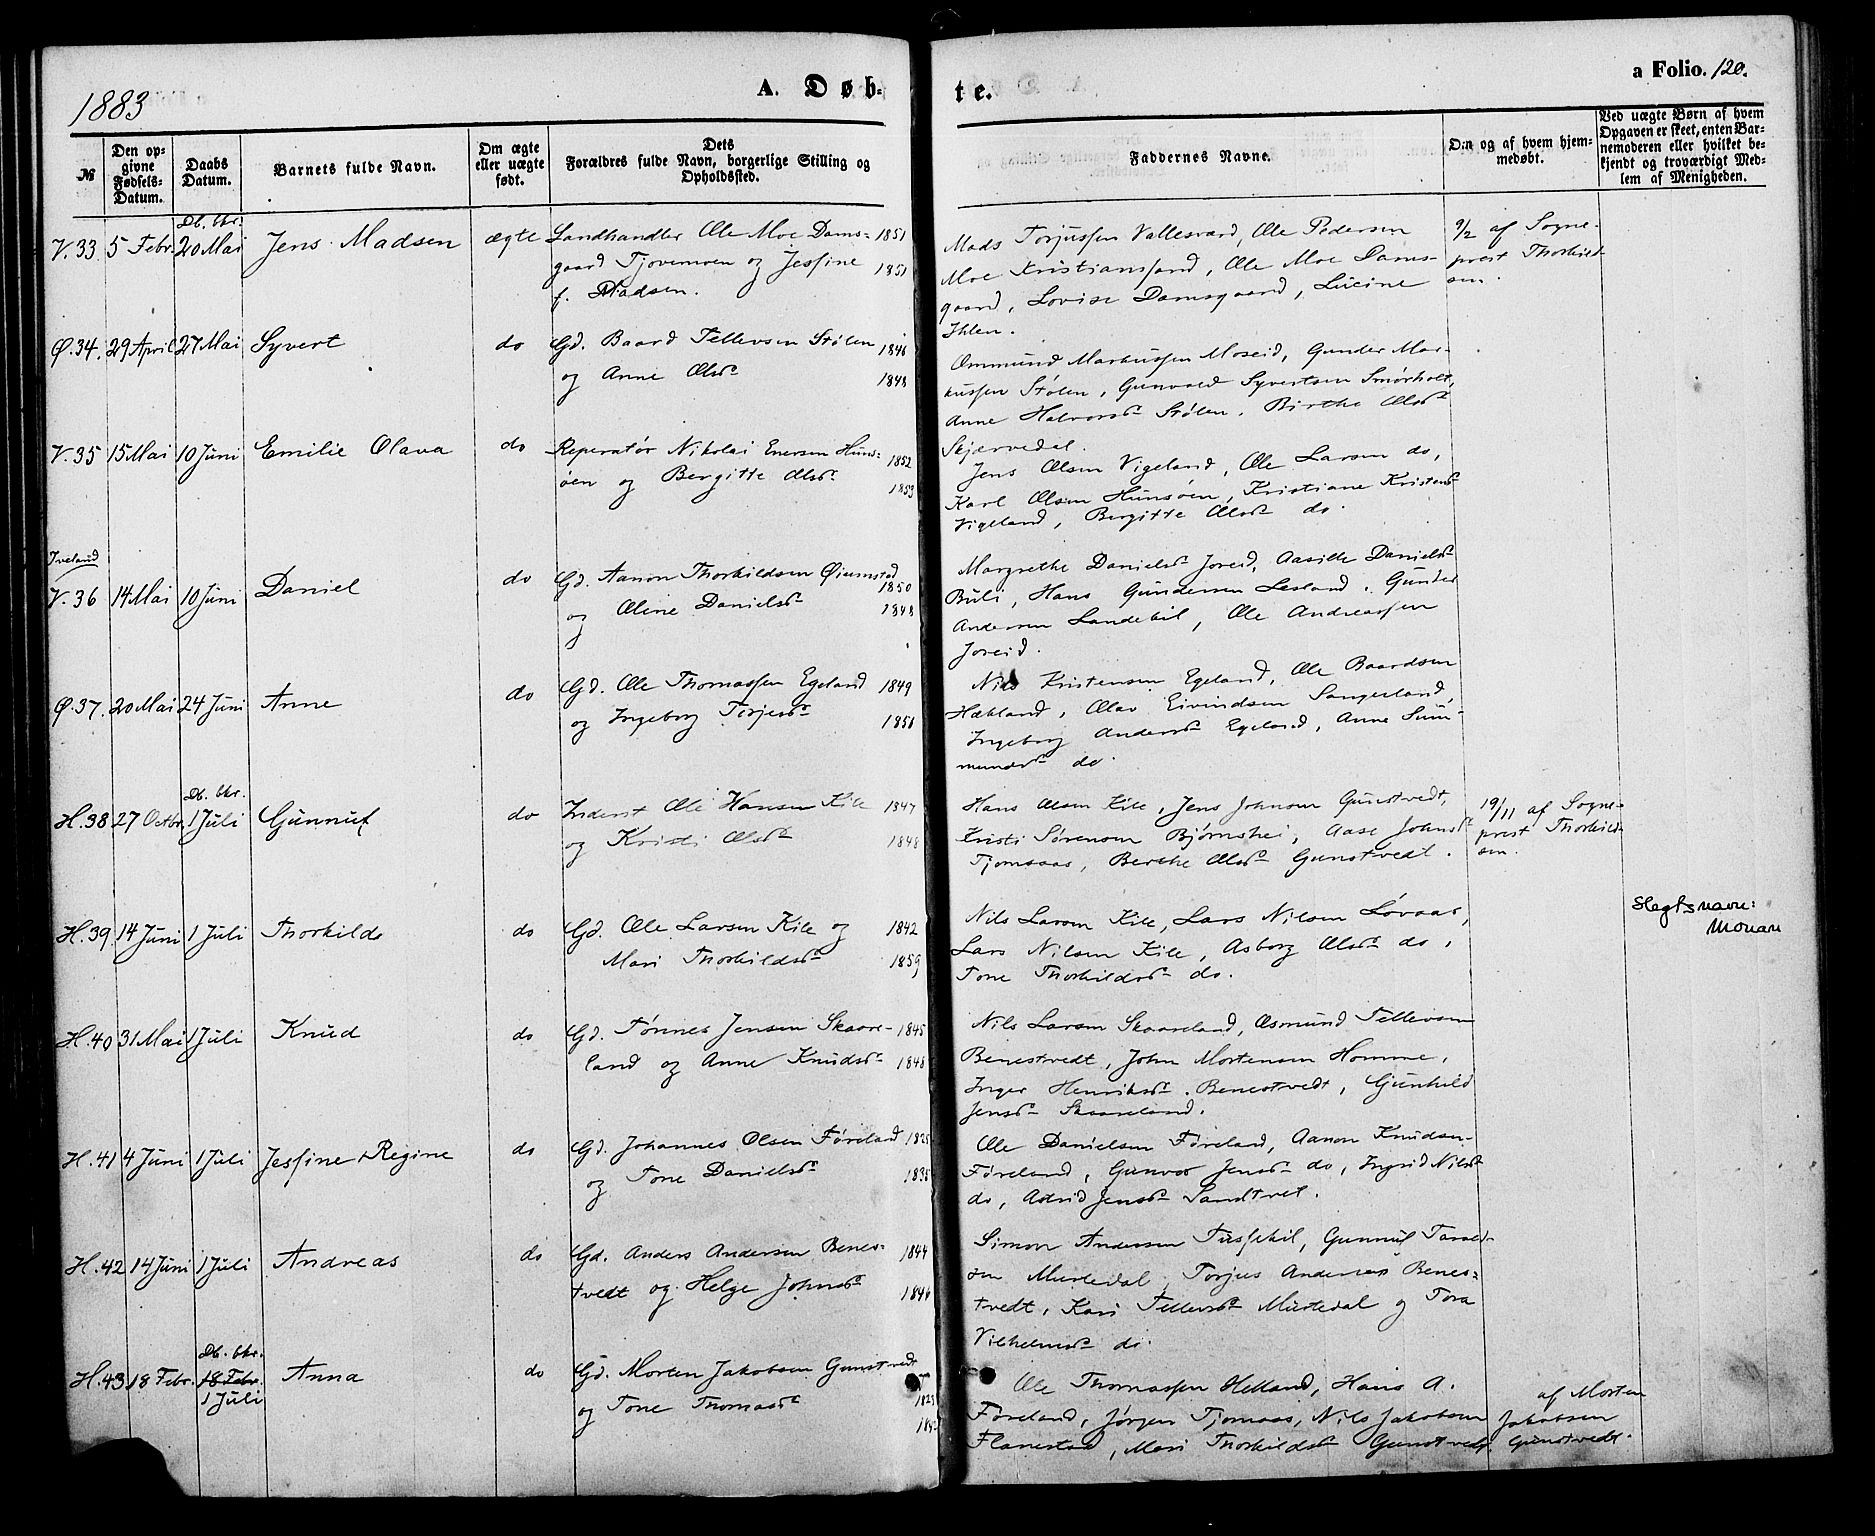 1883
A. Døb-
te.
a Folio. 120.
№
Den op-
givne
Fødsels-
Datum.
Daabs
Datum.
Barnets fulde Navn.
Om ægte
eller uægte
født.
Dets
Forældres fulde Navn, borgerlige Stilling og
Opholdssted.
Faddernes Navne.
Om og af hvem hjem-
medøbt.
Ved uægte Børn af hvem
Opgaven er skeet, enten Bar-
nemoderen eller hvilket be-
kjendt og troværdigt Med-
lem af Menigheden.
Db. bkr.
V. 33 5 Febr. 20 Mai Jens Madsen ægte Landhandler Ole Moe Dams- 1851
gaard Tjovemoen og Jesfine 1851
f. Madsen.
Mads Torjussen Vallesværd, Ole Pedersen
Moe Kristianssand, Ole Moe Dams-
gaard, Lovise Damsgaard, Lucine
Ihlen.
9/2 af Sogne-
prest Thorkild-
sen.
Ø. 34. 29 April 27 Mai Syvert do Gd. Baard Tellevsen Stølen 1846
og Anne Olsdr 1848
Ommund Markussen Moseid, Gunder Mar-
kussen Stølen, Gunvald Syvertsen Smørholt,
Anne Halvorsdr Stølen. Birthe Olsdr
Skjervedal.
V. 35 15 Mai 10 Juni Emilie Olava do Reperatør Nikolai Enersen Huns- 1852
øen og Bergitte Olsdr 1853
Jens Olsen Vigeland, Ole Larsen do,
Karl Olsen Hunsøen, Kristiane Kristensdr
Vigeland, Bergitte Olsdr do.
Iveland
V. 36 14 Mai 10 Juni Daniel do Gd. Aanon Thorkildsen Øiumstad 1850
og Oline Danielsdr 1848
Margrethe Danielsdr Joreid, Aasille Danielsdr
Buli, Hans Gundersen Lesland. Gunder
Andersen Landekil, Ole Andreassen
Joreid.
Ø. 37. 20 Mai 24 Juni Anne do Gd. Ole Thomassen Egeland 1849
og Ingeborg Terjesdr 1851
Nils Kristensen Egeland, Ole Baardsen
Hækland, Olav Eivindsen Sangesland,
Ingeborg Andersdr Egeland, Anne Sum-
mundsdr do.
Db. bkr.
H. 38 27 Octbr. 1 Juli Gunnuf do Inderst Ole Hansen Kile 1847
og Kristi Olsdr 1848
Hans Olsen Kile, Jens Johnsen Gunstvedt,
Kristi Sørensen Bjørnshei, Aase Johnsdr
Tjomsaas, Berthe Olsdr Gunstvedt.
19/11 af Sogne-
prest Thorkild-
sen.
H. 39 14 Juni 1 Juli Thorkild do Gd. Ole Larsen Kile og 1842
Mari Thorkildsdr 1859
Nils Larsen Kile, Lars Nilsen Løvaas,
Lars Nilsen Kile, Asborg Olsdr do,
Tone Thorkildsdr do.
Slegtsnavn:
Monan
H. 40 31 Mai 1 Juli Knud do Gd. Tønnes Jensen Skaare- 1845
land og Anne Knudsdr 1848
Nils Larsen Skaareland, Osmund Tellevsen
Benestvedt, John Mortensen Homme,
Inger Henriksdr. Benestvedt, Gunhild
Jensdr Skaareland.
H. 41 4 Juni 1 Juli Jesfine Regine do Gd. Johannes Olsen Føreland 1825
og Tone Danielsdr 1835
Ole Danielsen Føreland, Aanon Knudsen
Føreland, Gunvor Jensdr do, Ingrid Nilsdr
do, Astrid Jensdr Sandtvet.
H. 42 14 Juni 1 Juli Andreas do Gd. Anders Andersen Benes- 1844
tvedt og Helge Johnsdr 1846
Simon Andersen Tussekil, Gunnuf Tarald-
sen Murtedal, Torjus Andersen Benes-
tvedt, Kari Tellevsdr Murtedal og Tora
Vilhelmsdr do.
Db. bkr.
H. 43 18 Febr. 18 Febr. Anna do Gd. Morten Jakobsen Gunstvedt
1 Juli
og Tone Thomasdr
Ole Thomassen Helland, Hans A.
Føreland, Jørgen Tjomsaas, Nils Jakobsen
Flanestad, Mari Thorkildsdr Gunstvedt.
af Morten
Jakobsen
Gunstvedt.